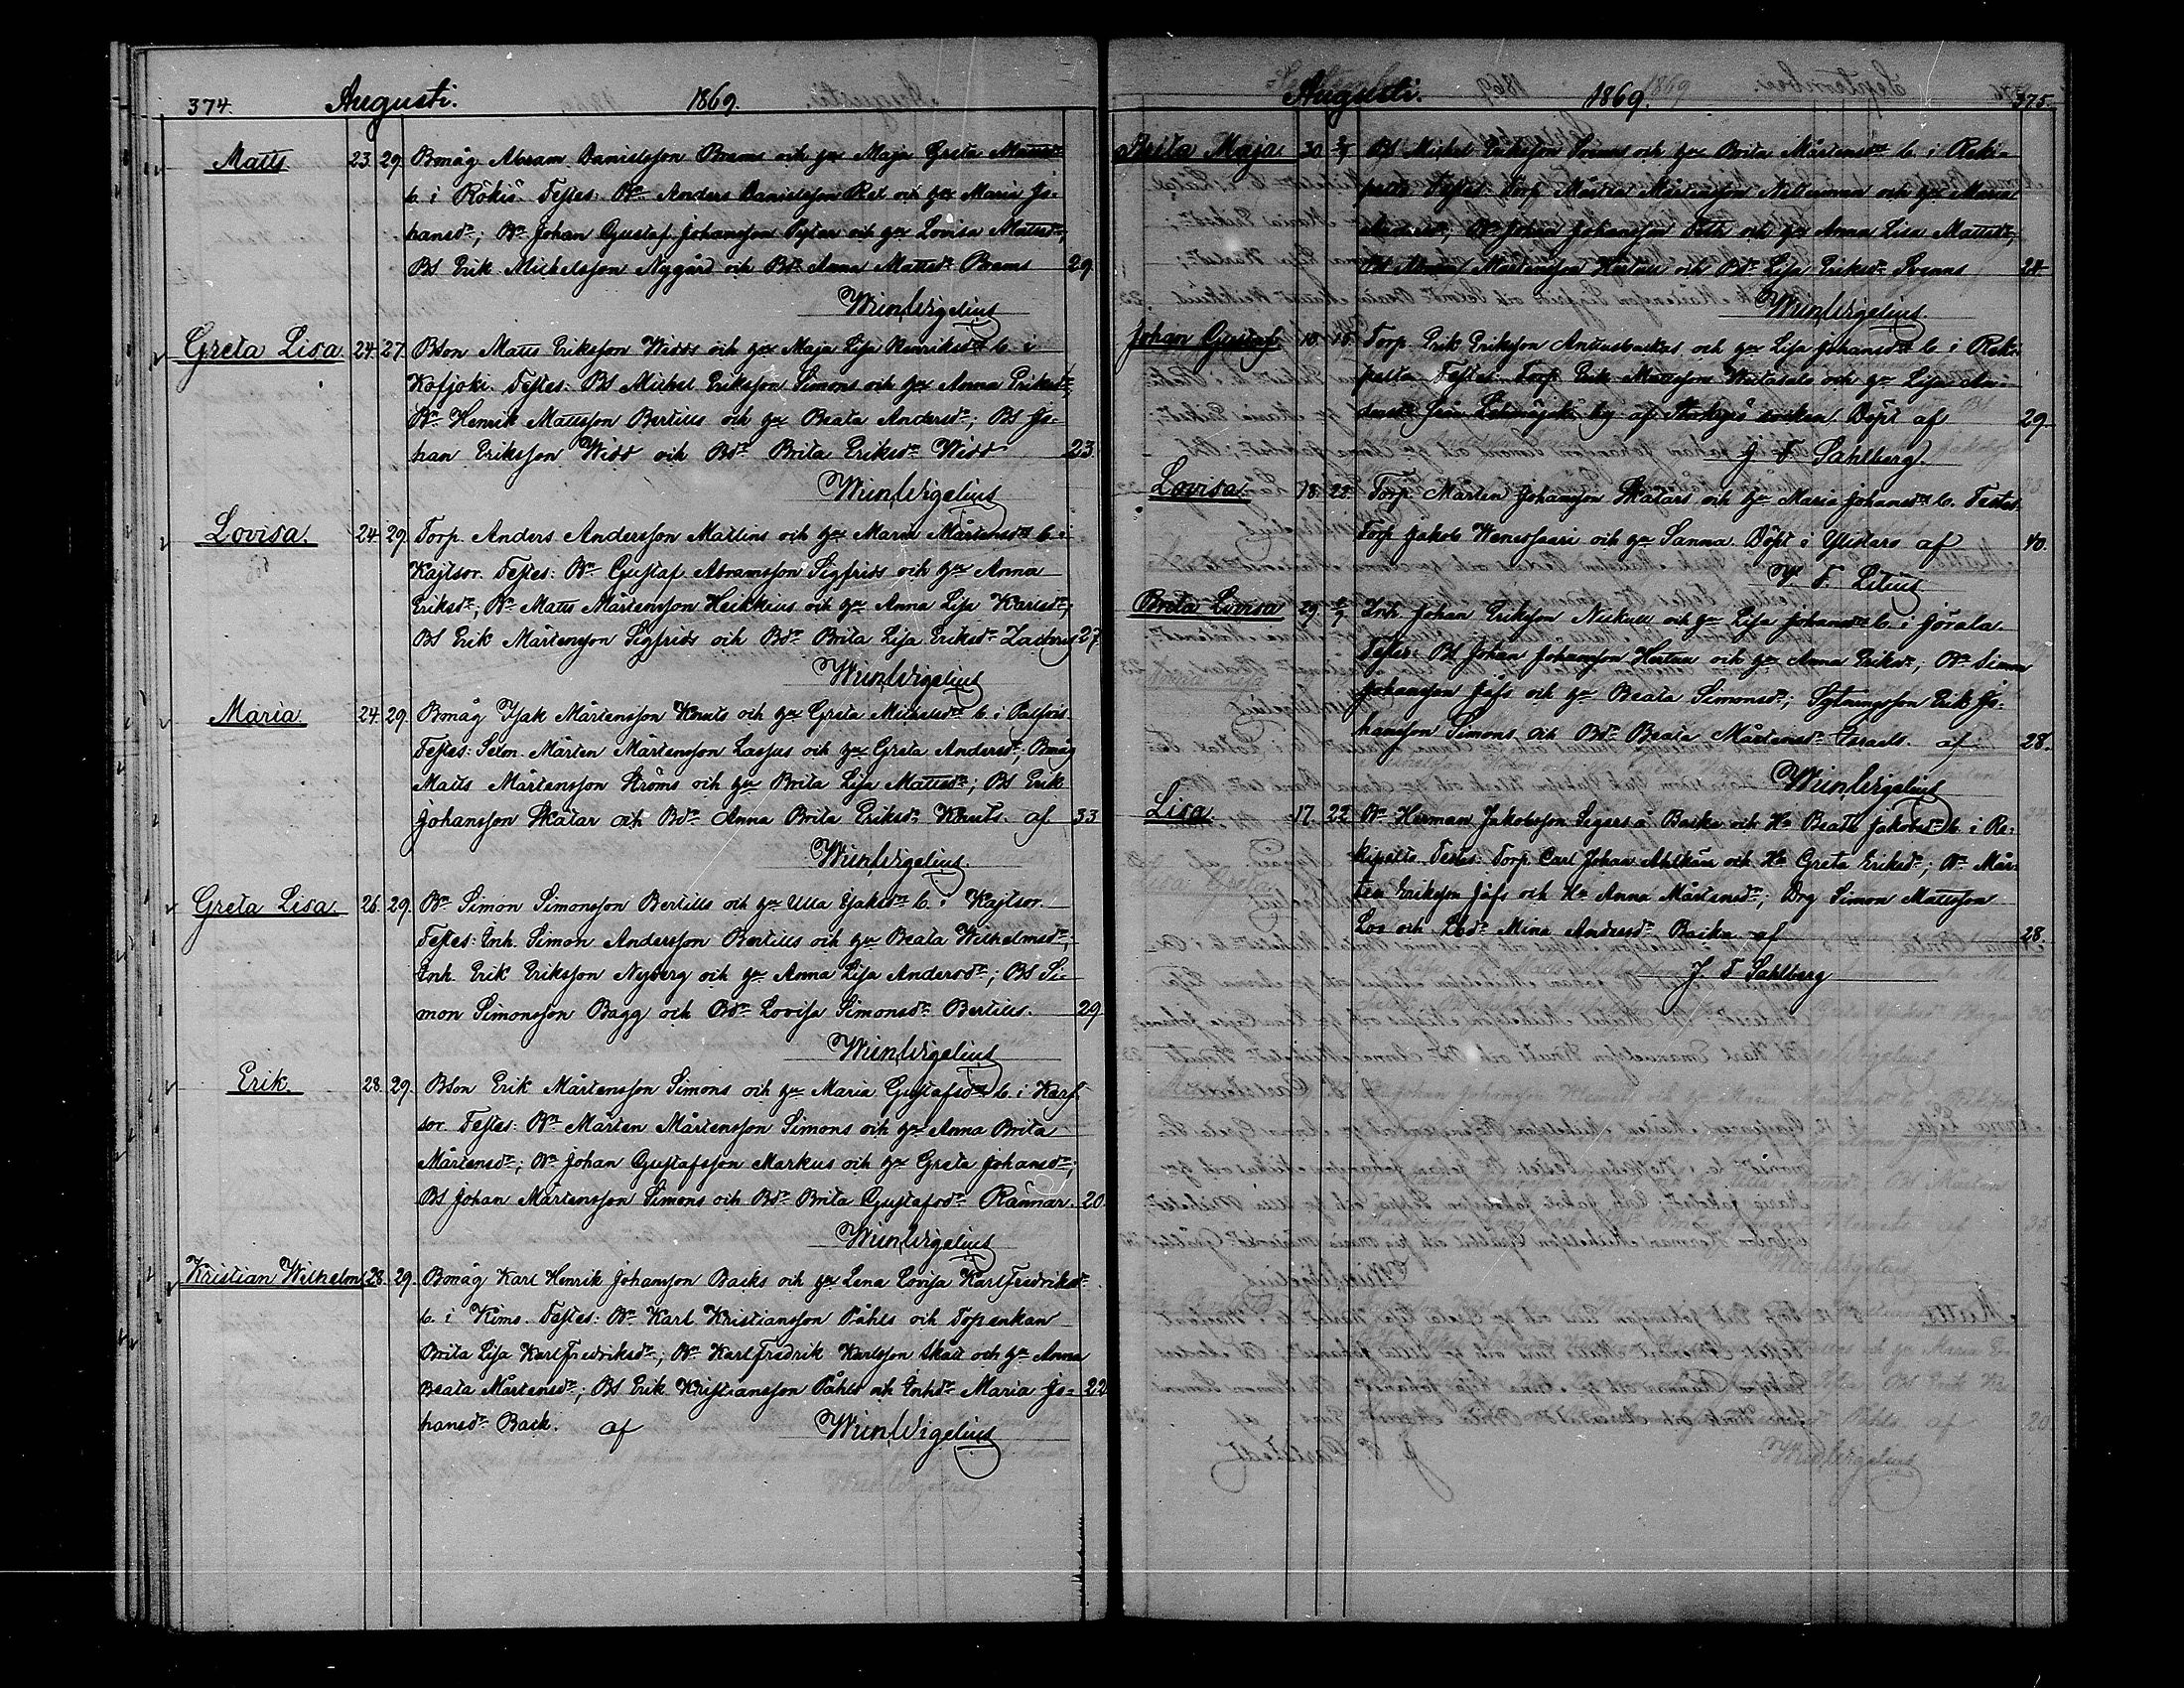 374. Augusti. 1869.
Matts 23. 29. Bmåg Abram Danielsson Brams och hu Maja Greta Mattsdr
b. i Rökiö. Testes: Bn Anders Danielsson Rex och hu Maria Jo-
hansdr; Bn Johan Gustaf Johansson Pistar och hu Lovisa Mattsdr;
BS Erik Michelsson Nygård och Bdr Anna Mattsdr Brams 29
Wm Wigelius
Greta Lisa. 24. 27. Bson Matts Eriksson Widss och hu Maja Lisa Henriksdr b. i
Kofjoki. Testes: BS Michel Eriksson Simons och hu Anna Eriksdr;
Bn Henrik Mattsson Bertills och hu Beata Andersdr; BS Jo-
han Eriksson Widd och Bdr Brita Eriksdr Widd 23.
Wm Wigelius
Lovisa. 24. 29. Torp. Anders Andersson Mattins och hu Maria Mårtensdr b. i
Kajtsor. Testes: Bn Gustaf Abramsson Sigfrids och hu Anna
Eriksdr; Bn Matts Mårtensson Heikkius och hu Anna Lisa Karlsdr;
BS Erik Mårtensson Sigfrids och Bdr Brita Lisa Eriksdr Zachris 27.
Wm Wigelius
Maria. 24. 29. Bmåg Isak Mårtensson Knuts och hu Greta Michelsdr b. i
Testes: Sexm. Mårten Mårtensson Lassus och hu Greta Andersdr; Bmåg
Matts Mårtensson Ströms och hu Brita Lisa Mattsdr; BS Erik
Johansson Skatar och Bdr Anna Brita Eriksdr Knuts. af 33
Wm Wigelius.
Greta Lisa. 26. 29. Bn Simon Simonsson Bertills och hu Ulla Isaksdr b. i Kajtsor.
Testes: Inh. Simon Andersson Bertills och hu Beata Wilhelmsdr;
Inh. Erik Eriksson Nyberg och hu Anna Lisa Andersdr; BS Si-
mon Simonsson Bagg och Bdr Lovisa Simonsdr Bertills. 29.
Wm Wigelius
Erik. 28. 29. Bson Erik Mårtensson Simons och hu Maria Gustafsdr b. i Karf-
sor. Testes: Bn Mårten Mårtensson Simons och hu Anna Brita
Mårtensdr; Bn Johan Gustafsson Markus och hu Greta Johansdr;
BS Johan Mårtensson Simons och Bdr Brita Gustafsdr Rännar. 20.
Wm Wigelius
Kristian Wilhelm 28. 29. Bmåg Karl Henrik Johansson Backs och hu Lena Lovisa Karlfredriksdr
b. i Kims. Testes: Bn Karl Kristiansson Påhls och Torpenkan
Brita Lisa Karlfredriksdr; Bn Karlfredrik Karlsson Skatt och hu Anna
Beata Mårtensdr; BS Erik Kristiansson Påhls och Inhdr Maria Jo- 22
hansdr Back. af Wm Wigelius
Augusti. 1869. 375.
Brita Maja 30. BS Michel Eriksson Svenns och hu Brita Mårtensdr b. i Reki-
pelto. Testes: Torp. Mårten Mårtensson och hu Maria
Andersdr; Bn Johan Johansson och hu Anna Lisa Mattsdr;
BS Mårtensson Hertull och Bdr Lisa Eriksdr Svenns 24
Wm Wigelius.
Johan Gustaf. 10. 15. Torp. Erik Eriksson Anttusbackas och hu Lisa Johansdr b. i Reki-
pelto. Testes: Torp. Erik Mattsson och hu Lisa An-
dersdr från by af socken. Döpt af 29.
J. F. Sahlberg.
Lovisa. 18. 25. Torp. Mårten Johansson Skatars och hu Maria Johansdr b. Testes.
Torp Jakob Wenessaari och hu Sanna. Döpt i Ylistaro af 40.
F. Litius
Brita Lovisa 29. Inh Johan Eriksson Neckull och hu Lisa Johansdr b. i Jörala.
Testes: BS Johan Johansson Hertull och hu Anna Eriksdr; Bn Simon
Johansson Jåfs och hu Beata Simonsdr; Sytningsson Erik Jo-
hansson Simons och Bdr Beata Mårtensdr Israels. af 28.
Wm Wigelius
Lisa 17. 22. Bn Herman Jakobsson Segers a Backa och Hu Beata Jakobsdr b. i Re-
kipelto. Testes: Torp. Carl Johan och Hu Greta Eriksdr; Bn Mår-
ten Eriksson Jåfs och Hu Anna Mårtensdr; Drg Simon Mattsson
Loo och Bdr Mina Andersdr Backa af 28.
J. F. Sahlberg